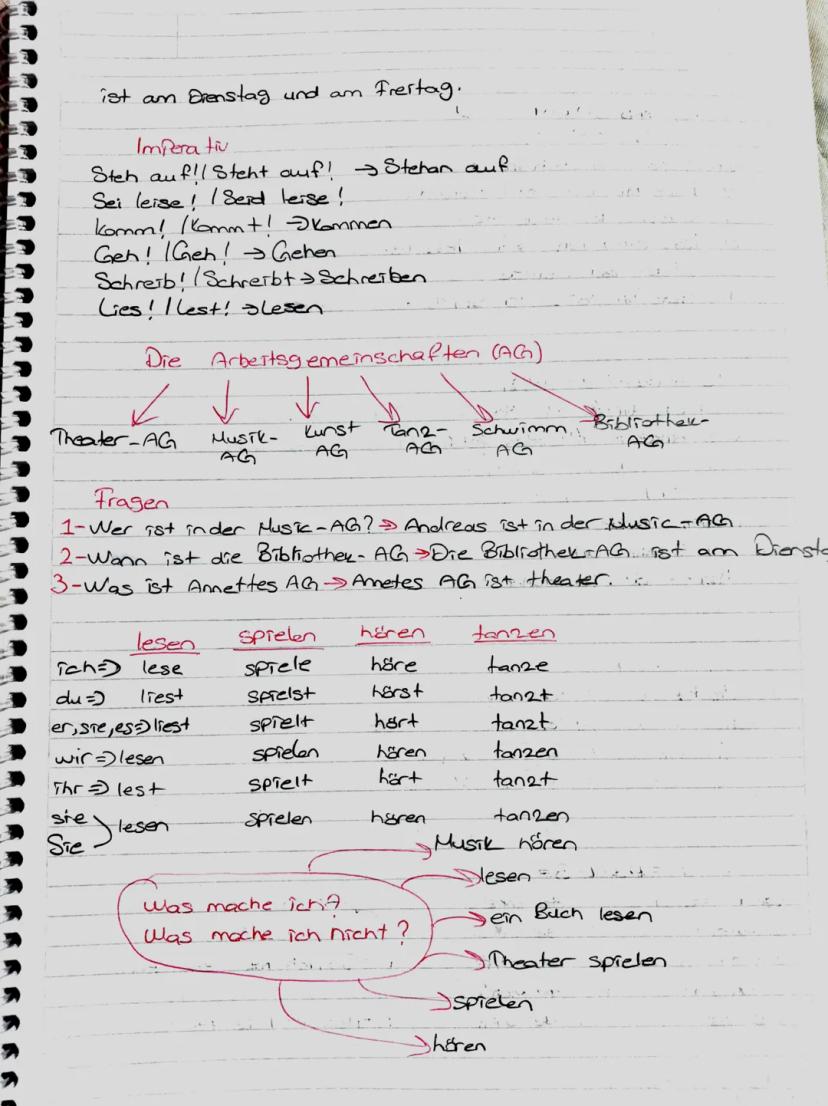 ist am Dienstag und am Freitag.
Imperativ
Steh auf! / Steht auf! → Stehan auf
Sei leise! / Seid leise!
Komm! / Kommt! → Kommen
Geh! / Geh! → Gehen
Schreib! / Schreibt → Schreiben
Lies! / lest! → lesen
Die Arbeitsgemeinschaften (AG)
Theater-AG Musik-AG Kunst AG Tanz-AG Schwimm AG Bibliothek-AG
Fragen
1-Wer ist in der Musik-AG? → Andreas ist in der Music-AG
2-Wann ist die Bibliothek-AG → Die Bibliothek-AG ist am Dienst
3-Was ist Annettes AG → Anetes AG ist theater.
lesen spielen hören tanzen
ich ⇒ lese spiele höre tanze
du ⇒ liest spielst hörst tanzt
er, sie, es ⇒ liest spielt hört tanzt
wir ⇒ lesen spielen hören tanzen
ihr ⇒ lest spielt hört tanzt
sie
Sie lesen spielen hören tanzen
Was mache ich?
Was mache ich nicht?
Musik hören
lesen
ein Buch lesen
Theater spielen
spielen
hören